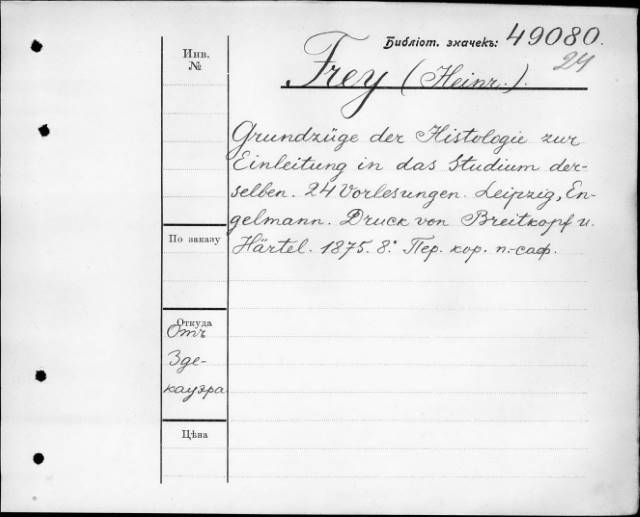 Библіот. значекъ: 49080.
24
Инв.
№
Frey (Heinr.).
Grundzüge der Histologie zur
Einleitung in das Studium der-
selben. 24 Vorlesungen. Leipzig, En-
gelmann. Druck von Breitkopf u.
Härtel. 1875. 8.° Пер. кор. п.-саф.
По заказу
Откуда
Отъ
Зде-
кауэра
Цѣна